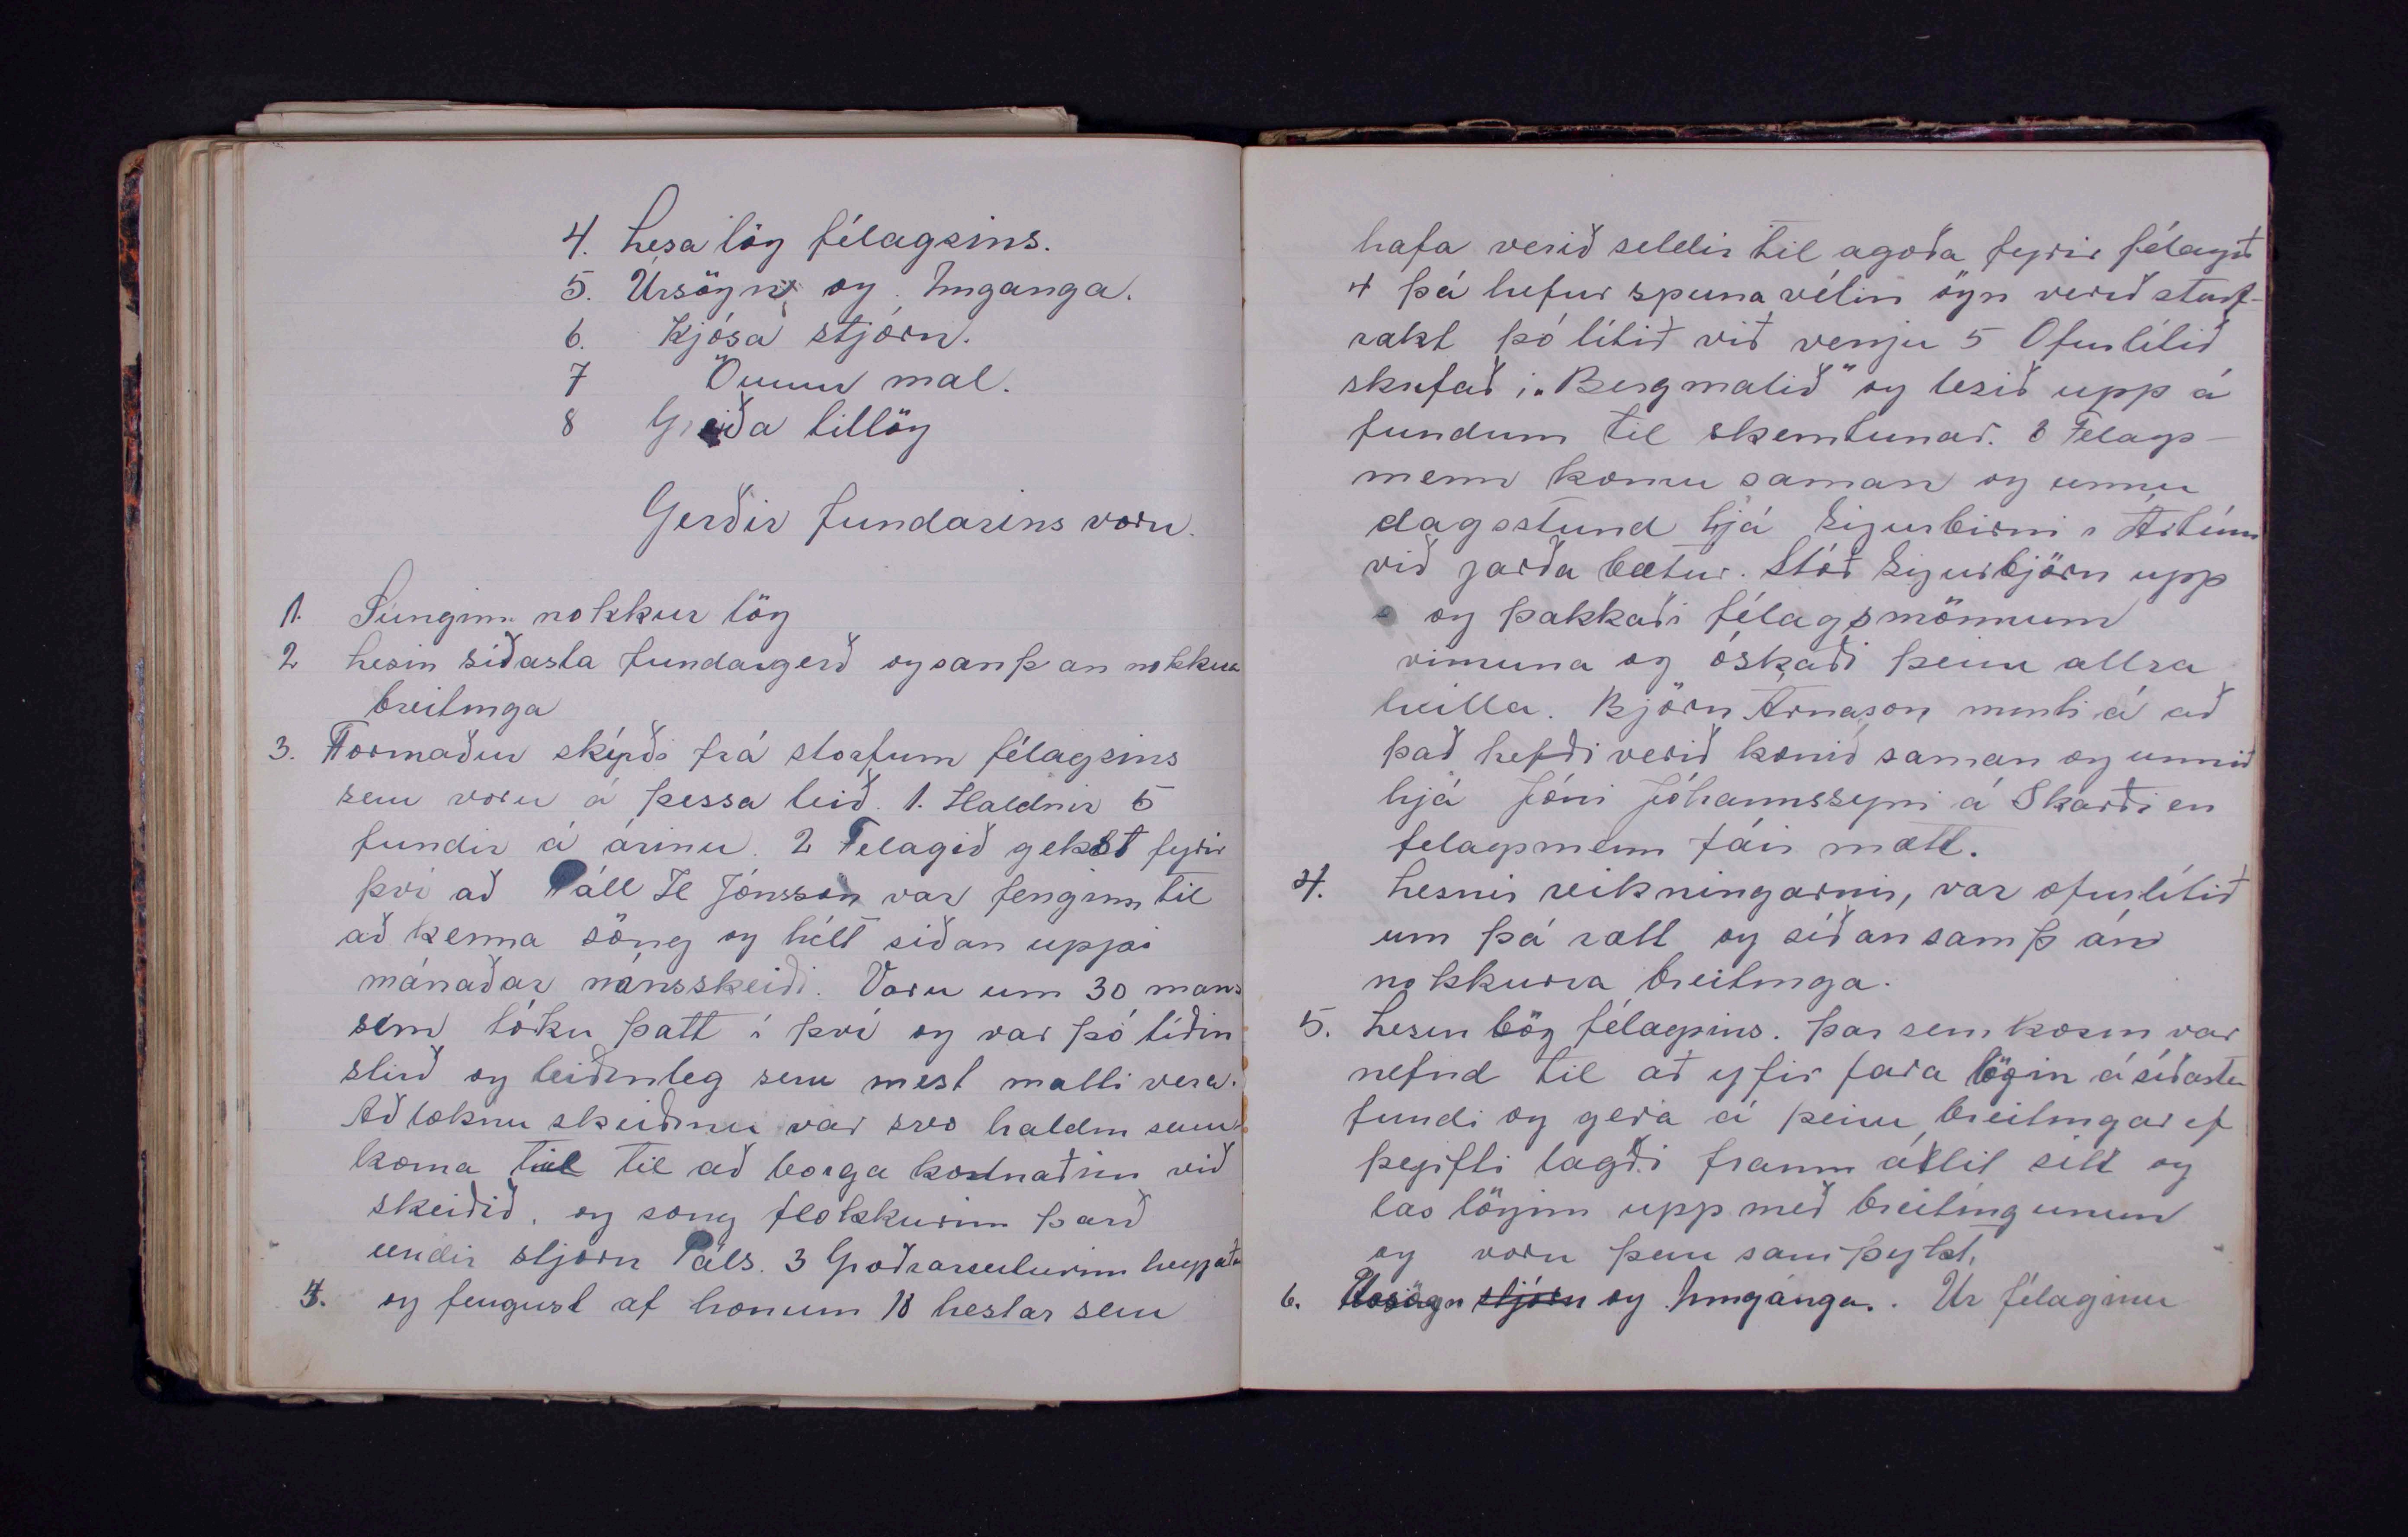 4. Lesa lög félagsins.
5. Úrsögn og Innganga.
6. Kjósa stjórn.
7 Önnur mal.
8 Greiða tillög
Gerðir fundarins voru.
1. Sunginn nokkur lög
2 Lesin síðasta fundargerð og samþ an nokkura
breitinga
3. Formaður skýrði frá störfum félagsins
sem voru á þessa leið. 1. Haldnir 5
fundir á árinu. 2 Felagið gekst fyrir
því að Páll H Jónsson var fenginn til
að kenna söng og hélt siðan uppi
mánaðar námsskeiði. Voru um 30 mans
sem tóku þatt í því og var þó tíðin
stirð og leiðinleg sem mest matti vera.
Að loknu skeiðinu var svo haldin sam
koma til til að borga kostnaðinn við
skeiðið, og song flokkurinn þar
undir stjorn Páls. 3 Groðrarreiturinn
4. og fengust af honum 18 hestar sem
hafa verið seldir til agoða fyrir félagið
4 þá hefur spuna vélin ögn verið starf-
rækt þó lítið við venju 5 Ofurlítið
skrifað i „Bergmalið" og lesið upp á
fundum til skemtunar. 8 Felags-
menn komu saman og unnu
dagsstund hjá Sigurbirni í Ártúni
við jarða bætur. Stóð Sigurbjörn upp
og þakkaði félagsmönnum
vinnuna og óskaði þeim allra
heilla. Björn Arnason minti á að
það hefði verið komið saman og unnið
hjá Jóni Jóhannssyni á Skarði en
felagsmenn fáir mætt.
4. Lesnir reikningarnir, var ofurlítið
um þá rætt og síðan samþ án
nokkurra breitinga.
5. Lesin lög félagsins. Þar sem kosin var
nefnd til að yfir fara lögin á siðasta
fundi og gera á þeim breitingar ef
þyrfti lagði framm álit sitt og
las lögin upp með breitingunum
og voru þau samþykt.
6. Úrsögn stjórn og Inngánga. Úr félaginu